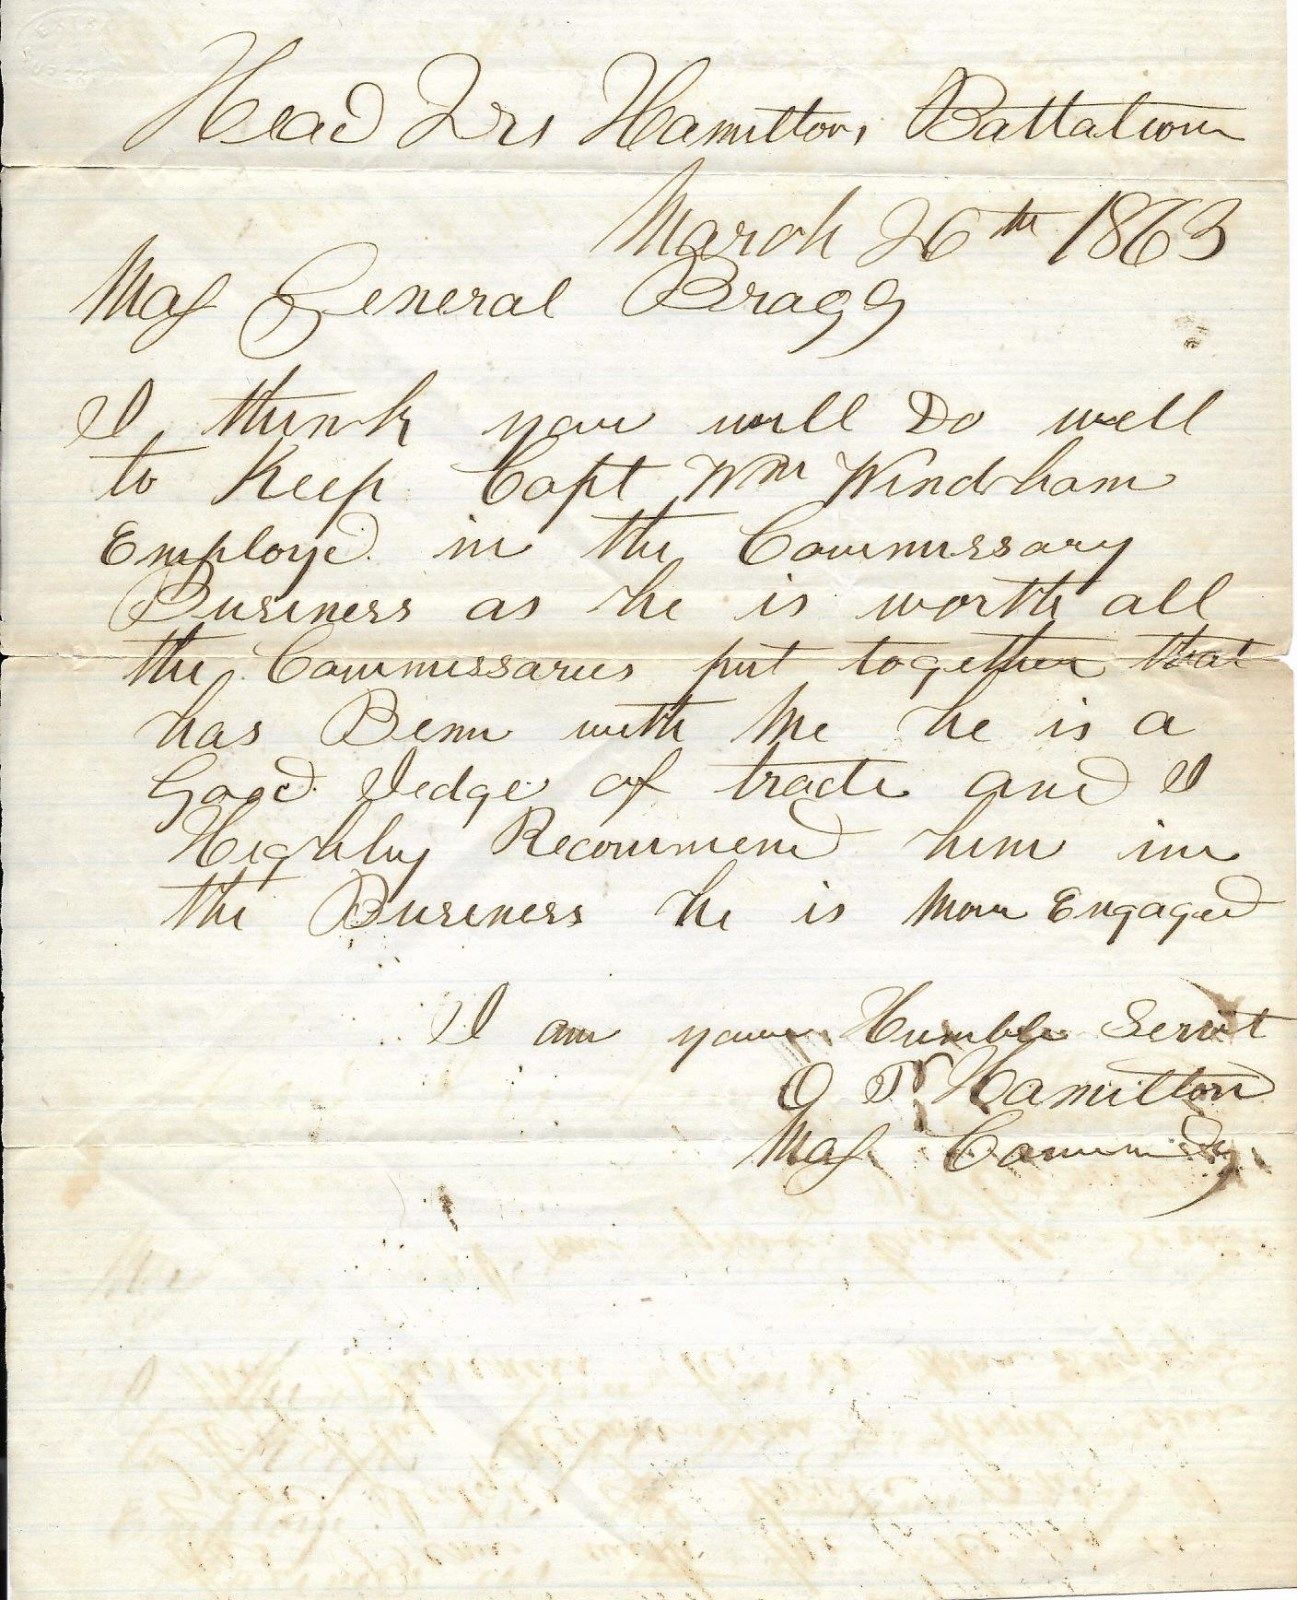 Head Qrs Hamiltons Battalion
March 26th 1863
Maj General Bragg
I think you will Do well
to Keep Capt Wm Windham
Employd in the Commissary
Business as he is worth all
the Commissaries put together that
has Benn with Me he is a
Good Jedge of trade and I
Highly Recommend him in
the Business he is Now Engaged
I am your Humble Servt
O P Hamilton
Maj Commdg